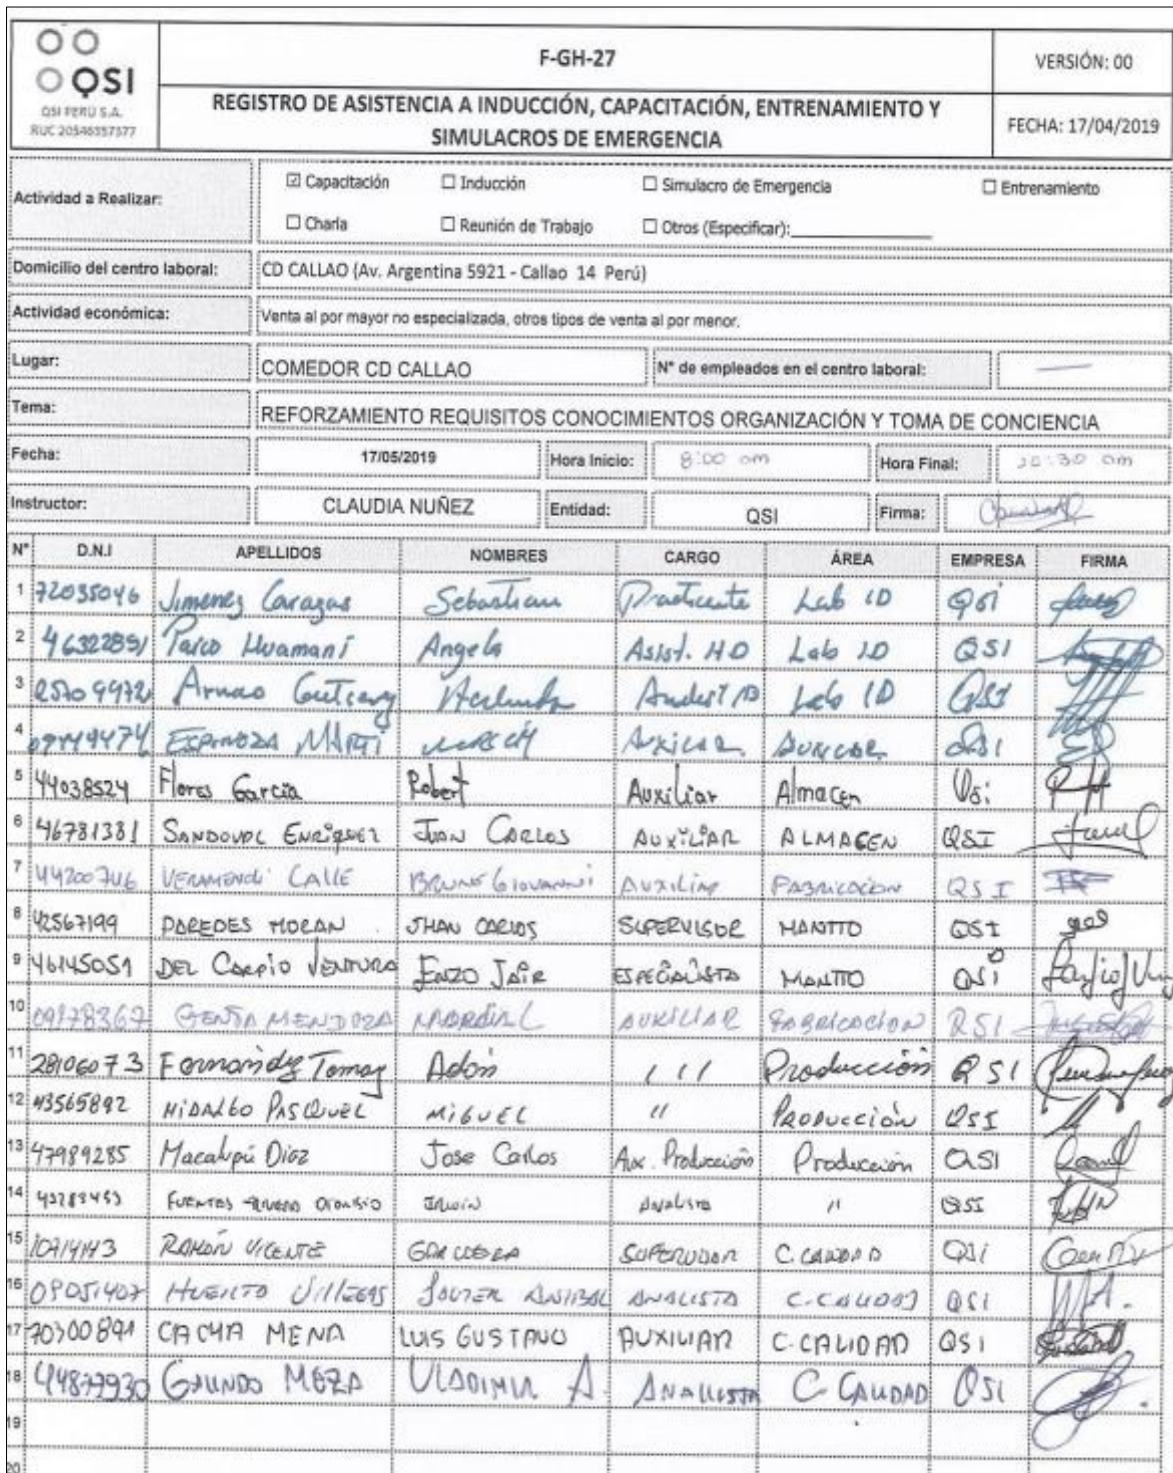 QSI
QSI PERÚ S.A.
RUC 20546357377
F-GH-27
VERSIÓN: 00
REGISTRO DE ASISTENCIA A INDUCCIÓN, CAPACITACIÓN, ENTRENAMIENTO Y
SIMULACROS DE EMERGENCIA
FECHA: 17/04/2019
Actividad a Realizar:
☑ Capacitación ☐ Inducción ☐ Simulacro de Emergencia ☐ Entrenamiento
☐ Charla ☐ Reunión de Trabajo ☐ Otros (Especificar):
Domicilio del centro laboral: CD CALLAO (Av. Argentina 5921 - Callao 14 Perú)
Actividad económica: Venta al por mayor no especializada, otros tipos de venta al por menor.
Lugar: COMEDOR CD CALLAO N° de empleados en el centro laboral: —
Tema: REFORZAMIENTO REQUISITOS CONOCIMIENTOS ORGANIZACIÓN Y TOMA DE CONCIENCIA
Fecha: 17/05/2019 Hora Inicio: 8:00 am Hora Final: 10:30 am
Instructor: CLAUDIA NUÑEZ Entidad: QSI Firma:
N° D.N.I APELLIDOS NOMBRES CARGO ÁREA EMPRESA FIRMA
1 72035046 Jimenez Sebastian Practicante Lab ID QSI
2 46322891 Parco Huamaní Angela Asist. Lab ID QSI
3 25709972 Arnao Lab ID QSI
4 ESPINOZA QSI
5 44038524 Flores García Robert Auxiliar Almacen
6 46781381 SANDOVAL ENRIQUEZ JUAN CARLOS AUXILIAR ALMACEN QSI
7 44200746 VERAMENDI CALLE BRUNO GIOVANNI AUXILIAR FABRICACION QSI
8 42567199 PAREDES MORAN JHAN CARLOS SUPERVISOR MANTTO QSI
9 46145051 DEL CARPIO VENTURA ENZO JAIR ESPECIALISTA MANTTO QSI
10 MENDOZA AUXILIAR FABRICACION QSI
11 28106073 Fernandez Tomas Adón / / / Producción QSI
12 43565892 HIDALGO PASQUEL MIGUEL " PRODUCCIÓN QSI
13 47989285 Macalupú Diaz Jose Carlos Aux. Producción Producción QSI
14 FUENTES IRWIN Analista " QSI
15 RAMÓN VICENTE C. CALIDAD QSI
16 09051407 VILLEGAS JAVIER ANIBAL ANALISTA C. CALIDAD QSI
17 70300891 CACHA MENA LUIS GUSTAVO AUXILIAR C. CALIDAD QSI
18 44877930 GALINDO MEZA VLADIMIR A. ANALISTA C. CALIDAD QSI
19
20